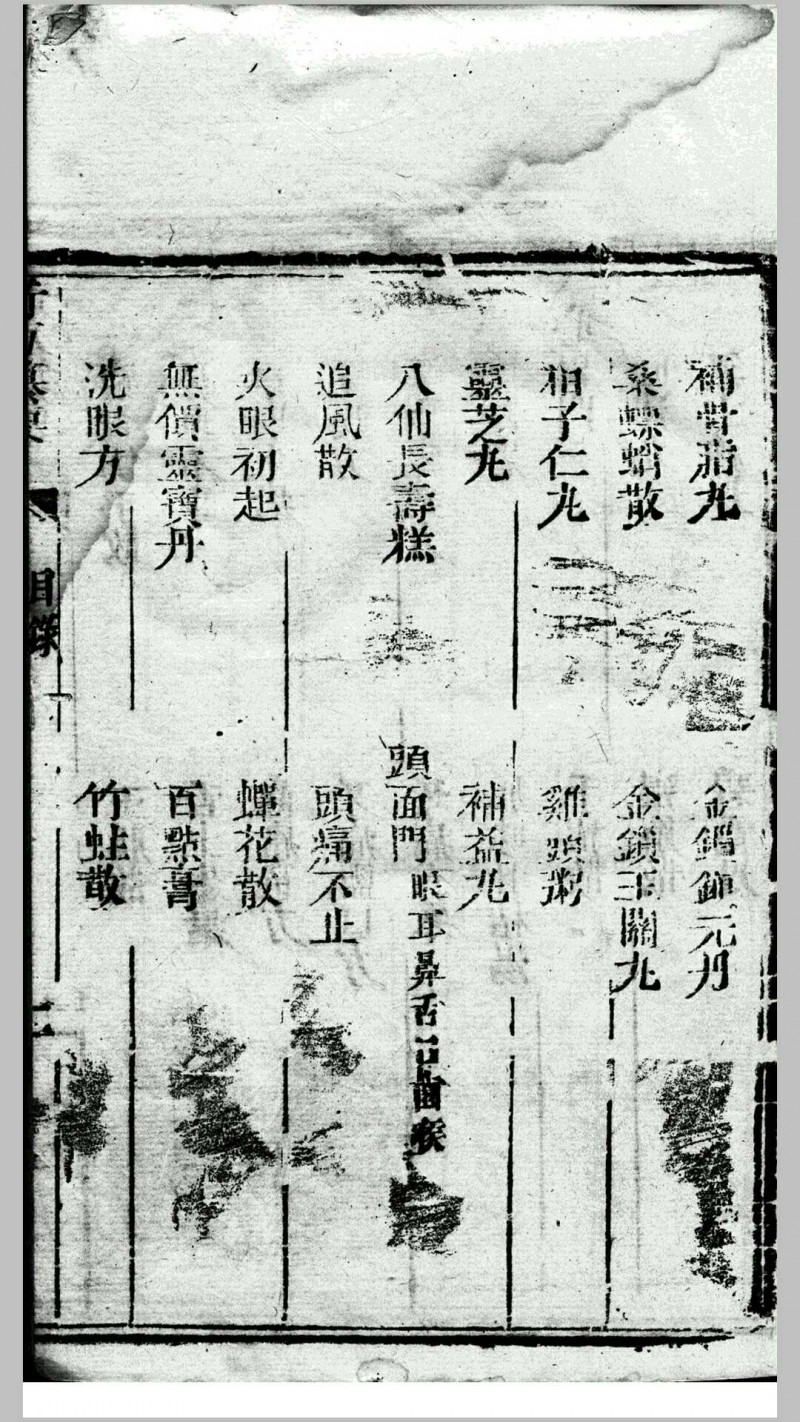 補骨脂丸
金鎖鎖元丹
桑螵蛸散
金鎖玉關丸
柏子仁丸
雞頭粥
靈芝丸
補益丸
八仙長壽糕
頭面門 眼耳鼻舌口齒喉
追風散
頭痛不止
火眼初起
蟬花散
無價靈寶丹
百點膏
洗眼方
竹蛀散
目錄